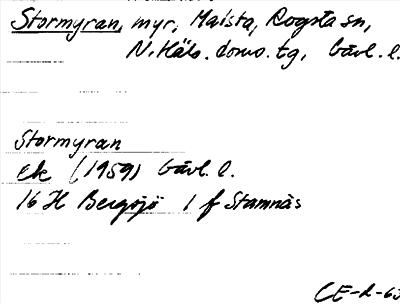 Stormyran, myr, Malsta, Rogsta sn,
N. Häls. doms. tg, Gävl. l.
Stormyran
ek (1959) Gävl. l.
16 H Bergsjö 1 f Stamnäs
CE-R-63